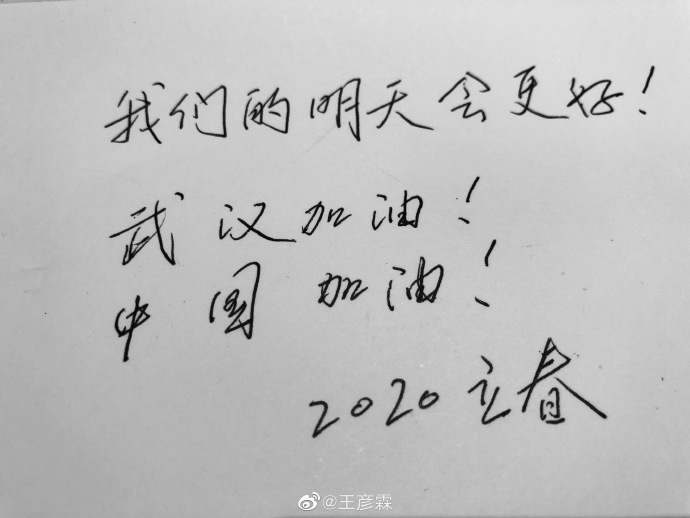 我们的明天会更好！
武汉加油！
中国加油！
2020立春
@王彦霖